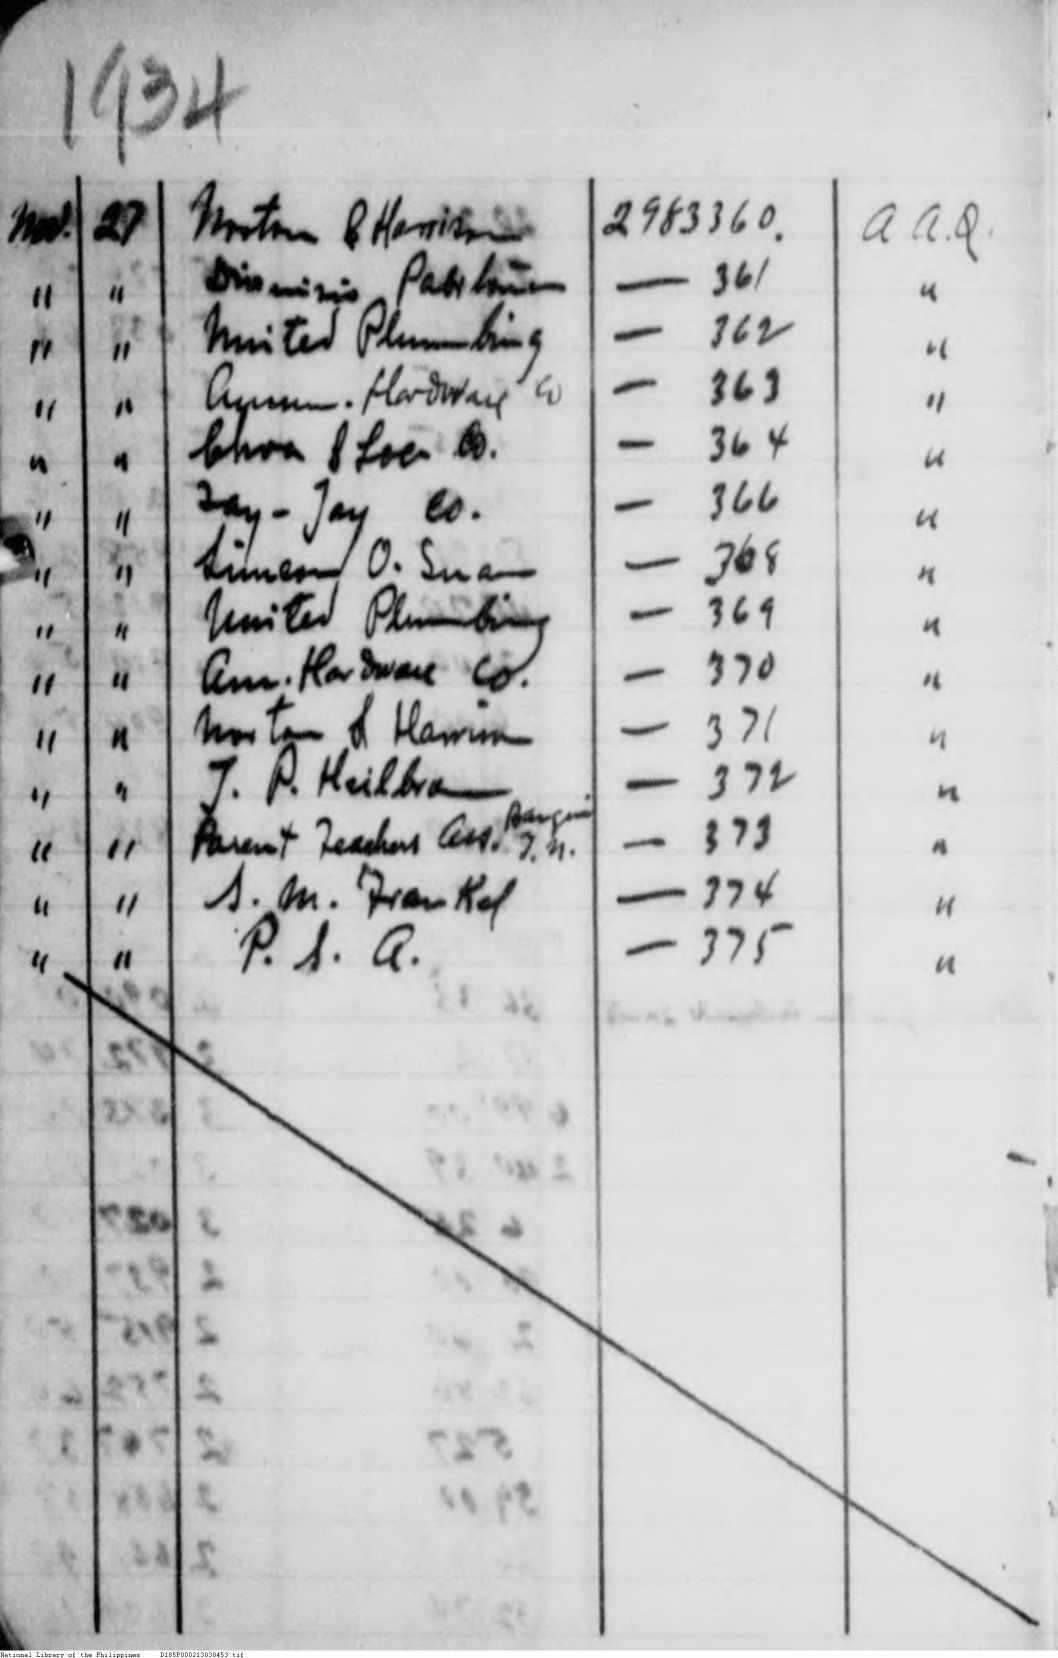 1934
Nov. 27 Norton & Harrison 2983360. A.A.Q.
" " Dionisio — 361 "
" " United Plumbing — 362 "
" " Amm. Hardware Co — 363 "
" " Choa & Loc Co. — 364 "
" " Zay-Jay Co. — 366 "
" " Simeon O. — 368 "
" " United Plumbing — 369 "
" " Am. Hardware Co. — 370 "
" " Norton & Harrison — 371 "
" " J. P. Heilbron — 372 "
" " Parent Teachers Ass. — 373 "
" " S. M. Frankel — 374 "
" " P. S. A. — 375 "
National Library of the Philippines D185P000213038453.tif